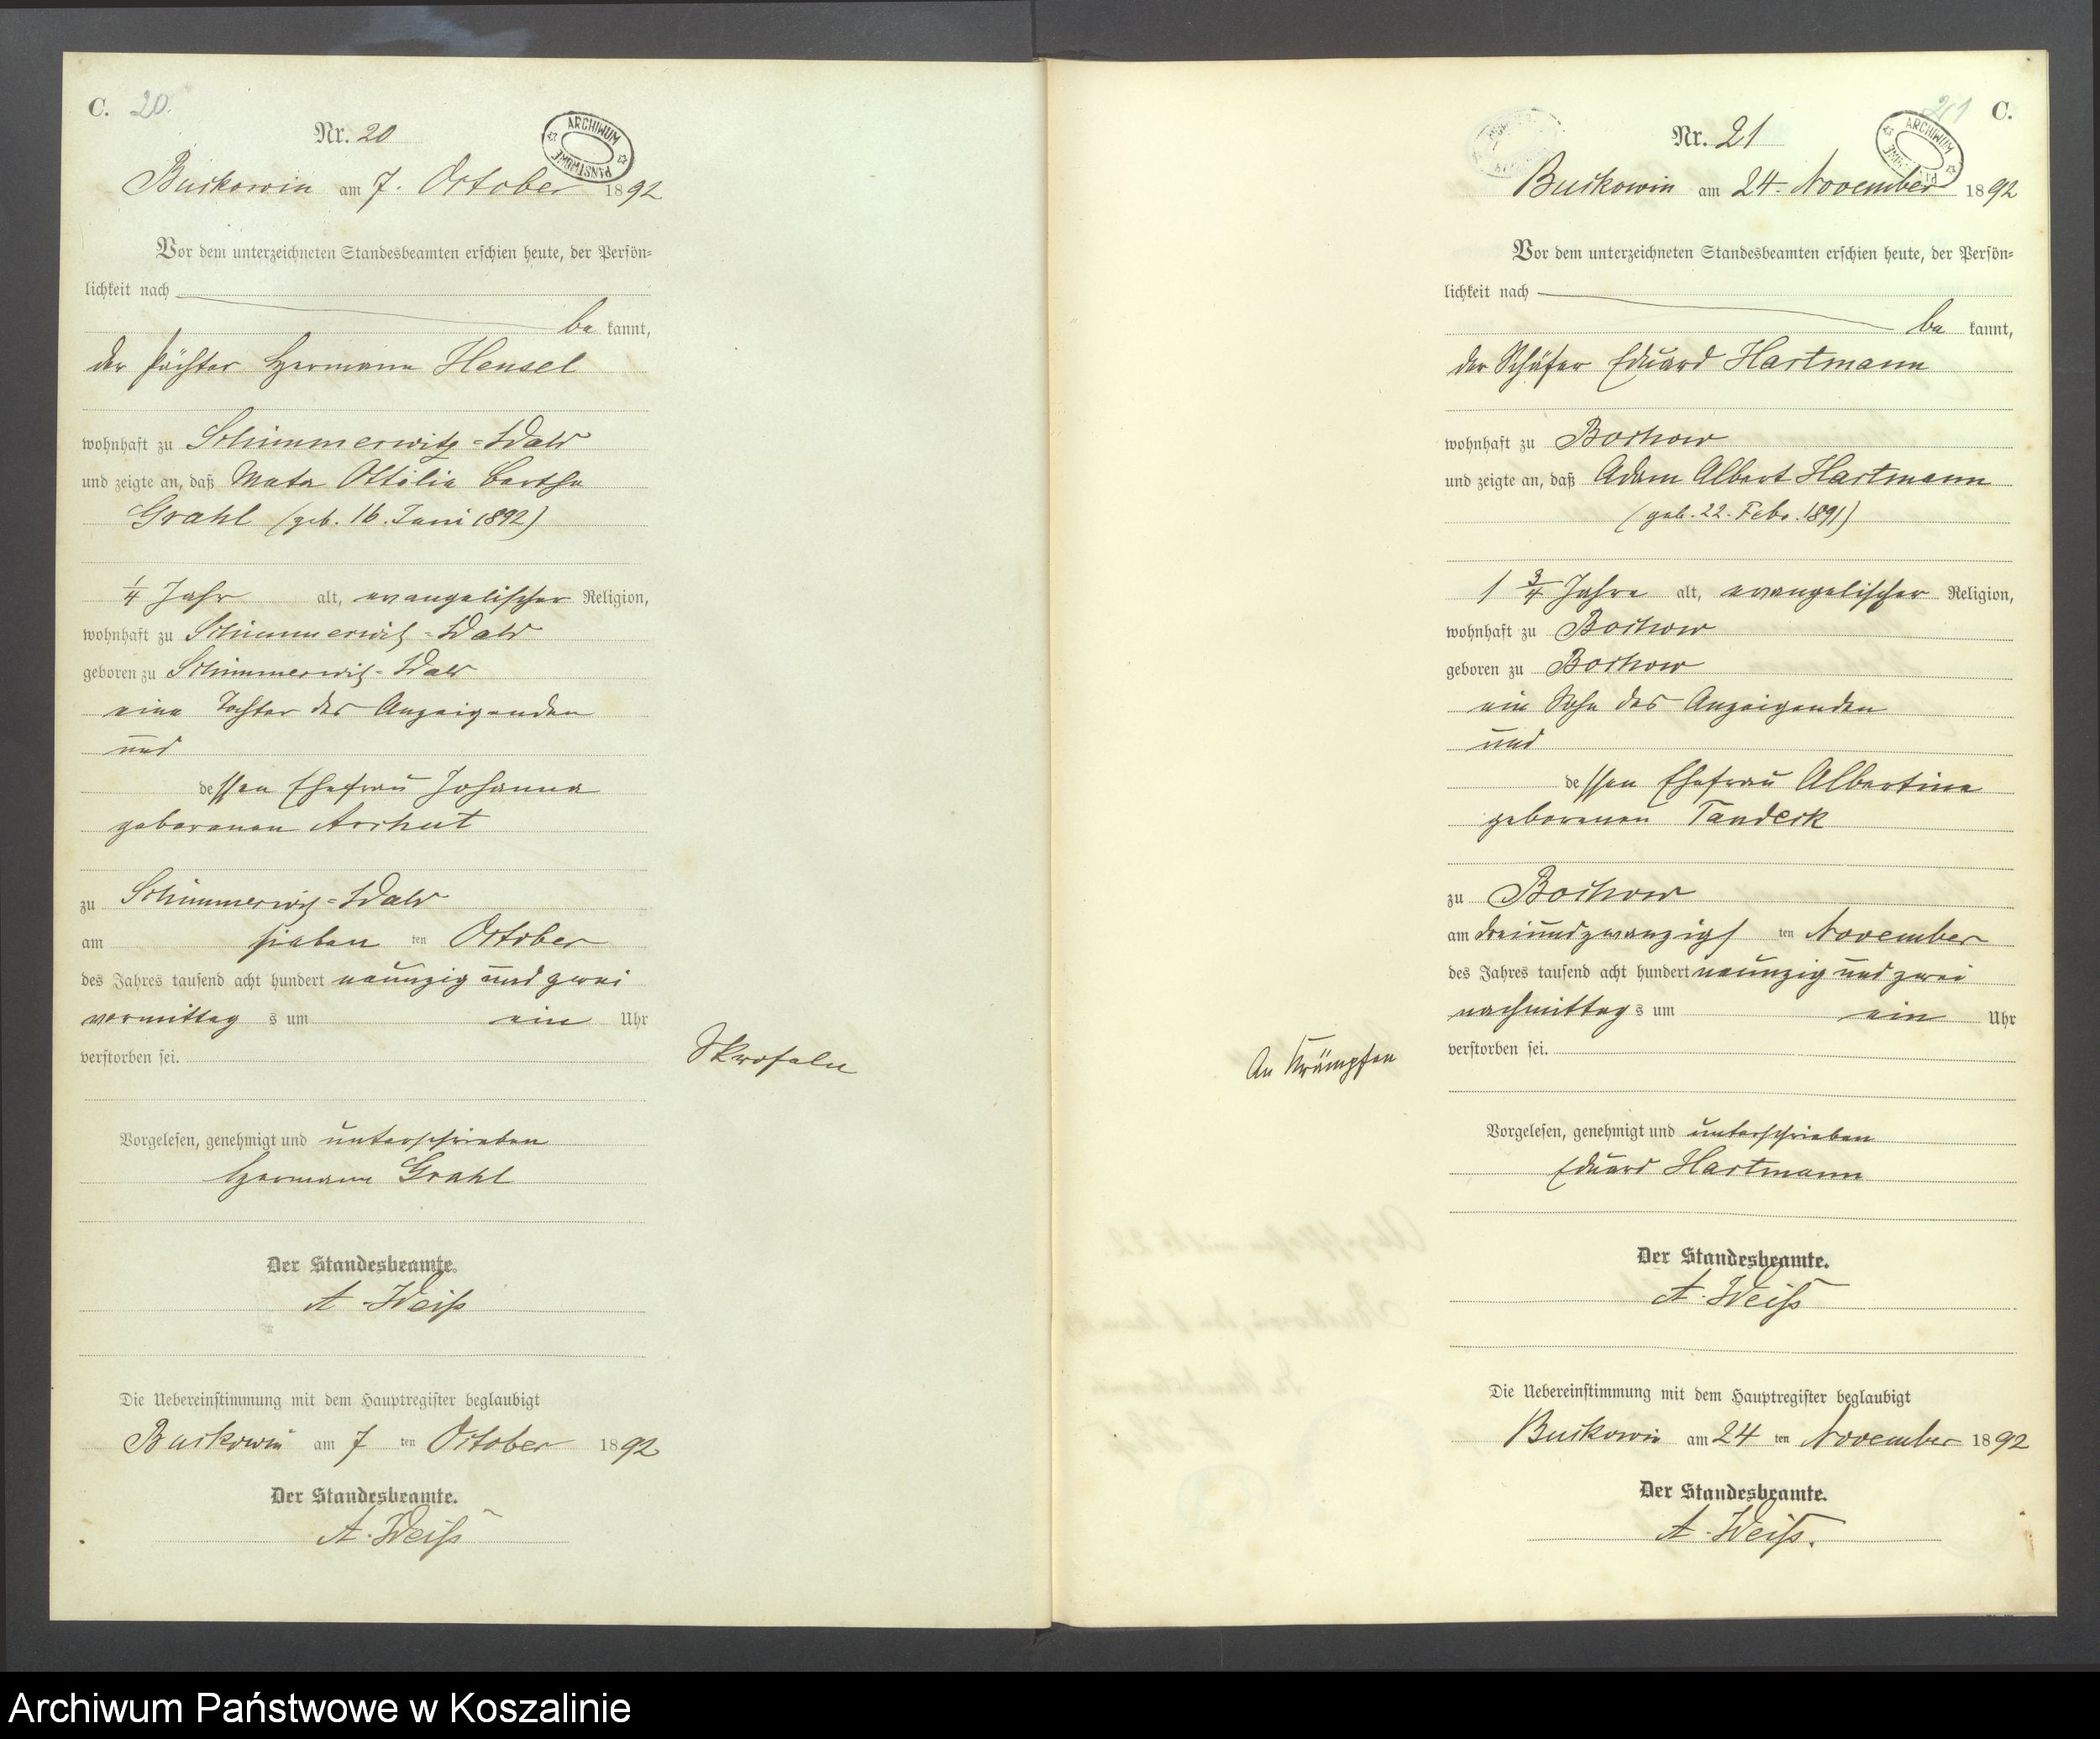 C. 20.
Nr. 20
ARCHIWUM PAŃSTWOWE
Buckowin am 7. October 1892
Vor dem unterzeichneten Standesbeamten erschien heute, der Persön-
lichkeit nach
be kannt,
der Pächter Hermann Hensel
wohnhaft zu Schimmerwitz-Wald
und zeigte an, daß Meta Ottilie Bertha
Grahl (geb. 16. Juni 1892)
1/4 Jahr alt, evangelischer Religion,
wohnhaft zu Schimmerwitz-Wald
geboren zu Schimmerwitz-Wald
eine Tochter des Anzeigenden
und
dessen Ehefrau Johanna
geborenen Archut
zu Schimmerwitz-Wald
am sieben ten October
des Jahres tausend acht hundert neunzig und zwei
vormittag s um ein Uhr
verstorben sei.
Skrofeln
Vorgelesen, genehmigt und unterschrieben
Hermann Grahl
Der Standesbeamte.
A. Weiß
Die Uebereinstimmung mit dem Hauptregister beglaubigt
Buckowin am 7 ten October 1892
Der Standesbeamte.
A. Weiß
21 C.
Nr. 21
ARCHIWUM
Buckowin am 24. November 1892
Vor dem unterzeichneten Standesbeamten erschien heute, der Persön-
lichkeit nach
be kannt,
der Schäfer Eduard Hartmann
wohnhaft zu Bochow
und zeigte an, daß Adam Albert Hartmann
(geb. 22. Febr. 1891)
1 3/4 Jahre alt, evangelischer Religion,
wohnhaft zu Bochow
geboren zu Bochow
ein Sohn des Anzeigenden
und
dessen Ehefrau Albertine
geborenen Tandeck
zu Bochow
am dreiundzwanzigs ten November
des Jahres tausend acht hundert neunzig und zwei
nachmittag s um ein Uhr
verstorben sei.
An Krämpfen
Vorgelesen, genehmigt und unterschrieben
Eduard Hartmann
Der Standesbeamte.
A. Weiß
Die Uebereinstimmung mit dem Hauptregister beglaubigt
Buckowin am 24 ten November 1892
Der Standesbeamte.
A. Weiß.
Archiwum Państwowe w Koszalinie